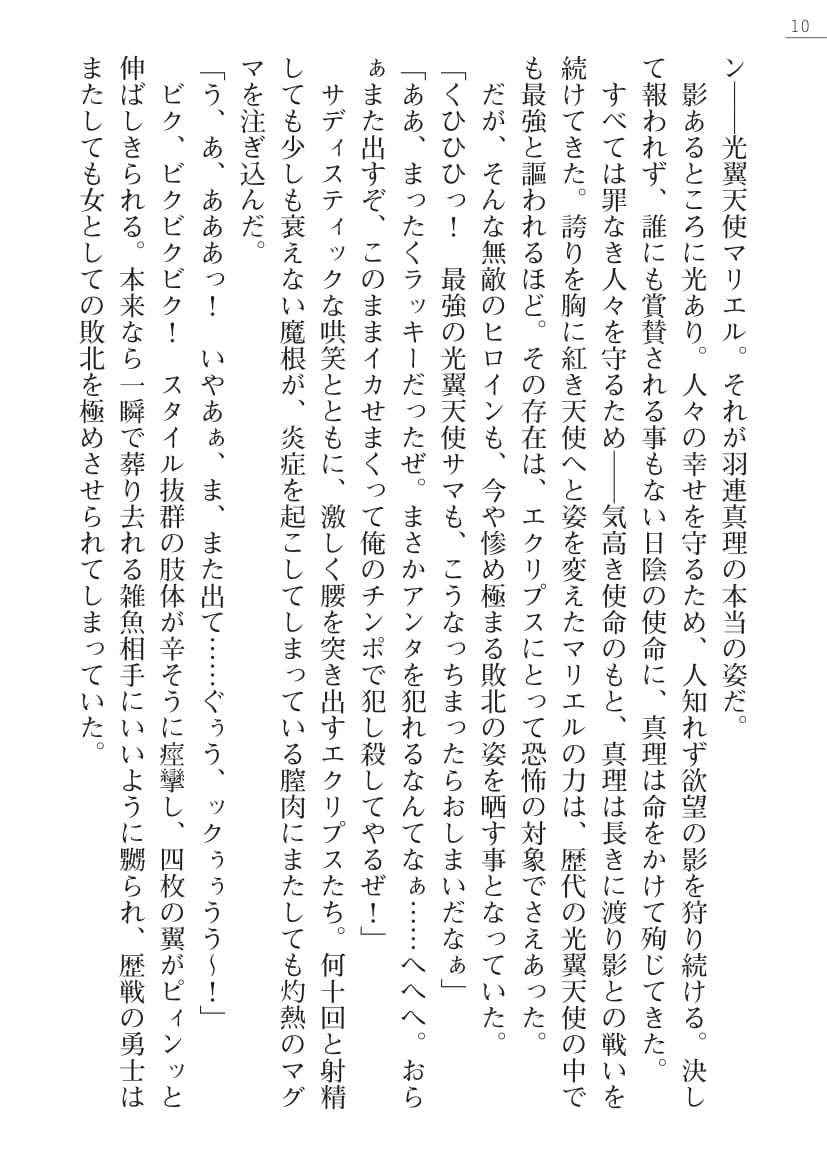 10
ン――光翼天使マリエル。それが羽連真理の本当の姿だ。
影あるところに光あり。人々の幸せを守るため、人知れず欲望の影を狩り続ける。決し
て報われず、誰にも賞賛される事もない日陰の使命に、真理は命をかけて殉じてきた。
すべては罪なき人々を守るため――気高き使命のもと、真理は長きに渡り影との戦いを
続けてきた。誇りを胸に紅き天使へと姿を変えたマリエルの力は、歴代の光翼天使の中で
も最強と謳われるほど。その存在は、エクリプスにとって恐怖の対象でさえあった。
だが、そんな無敵のヒロインも、今や惨め極まる敗北の姿を晒す事となっていた。
「くひひひっ！　最強の光翼天使サマも、こうなっちまったらおしまいだなぁ」
「ああ、まったくラッキーだったぜ。まさかアンタを犯れるなんてなぁ……へへへ。おら
ぁまた出すぞ、このままイカせまくって俺のチンポで犯し殺してやるぜ！」
サディスティックな哄笑とともに、激しく腰を突き出すエクリプスたち。何十回と射精
しても少しも衰えない魔根が、炎症を起こしてしまっている膣肉にまたしても灼熱のマグ
マを注ぎ込んだ。
「う、あ、あああっ！　いやあぁ、ま、また出て……ぐぅう、ックぅぅうう～！」
ビク、ビクビクビク！　スタイル抜群の肢体が辛そうに痙攣し、四枚の翼がピィンッと
伸ばしきられる。本来なら一瞬で葬り去れる雑魚相手にいいように嬲られ、歴戦の勇士は
またしても女としての敗北を極めさせられてしまっていた。